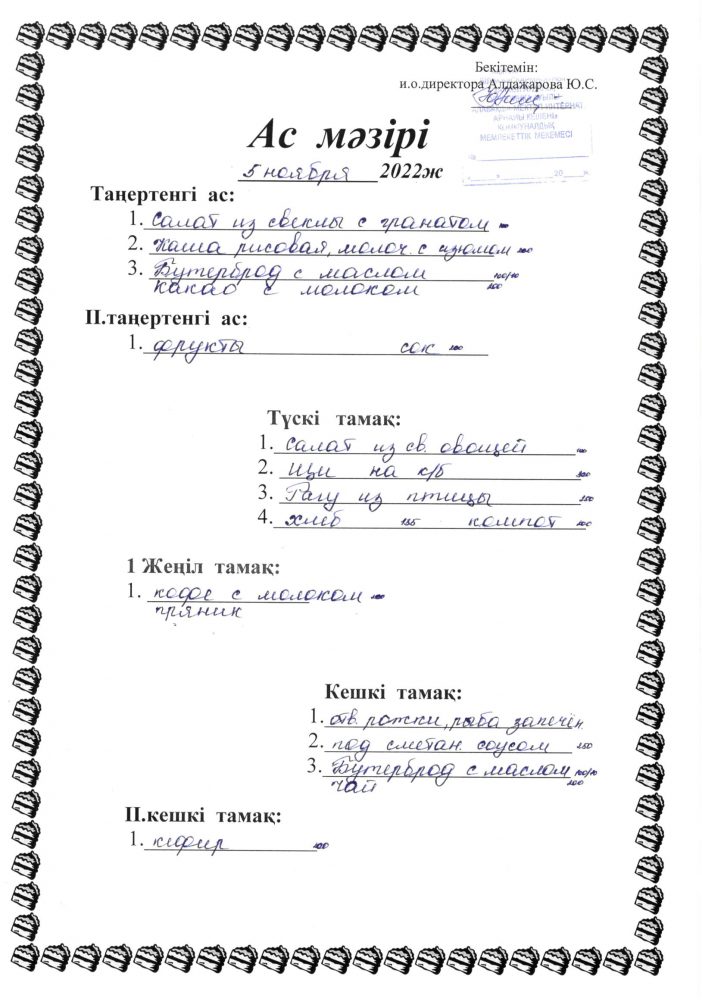 Бекітемін:
и.о.директора Алдажарова Ю.С.
АРНАЙЫ КЕШЕНІ
КОММУНАЛДЫҚ
МЕМЛЕКЕТТІК МЕКЕМЕСІ
№
20
Ас мәзірі
5 ноября 2022ж
Таңертенгі ас:
1. Салат из свеклы с гранатом
2. Каша рисовая, молоч. с изюмом 200
3. Бутерброд с маслом 100/10
какао с молоком 200
ІІ.таңертенгі ас:
1. фрукты сок 200
Түскі тамақ:
1. Салат из св. овощей 100
2. Щи на к/б 300
3. Рагу из птицы 250
4. хлеб 135 компот 200
1 Жеңіл тамақ:
1. кофе с молоком 200
пряник
Кешкі тамақ:
1. отв. рожки, рыба запечён.
2. под сметан. соусом 250
3. Бутерброд с маслом 100/10
чай 200
ІІ.кешкі тамақ:
1. кефир 200